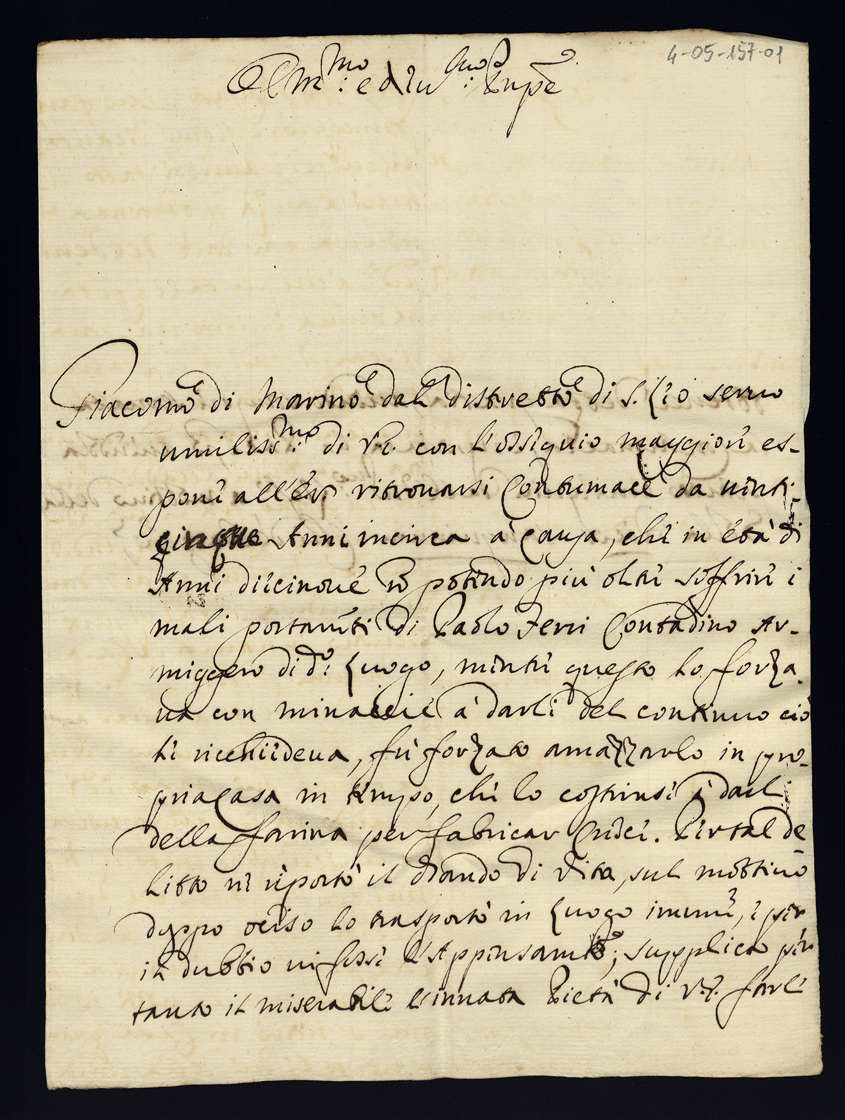 4-05-157-01
Ill.mo: ed Ecc:mo
Giacomo di Marino dal distretto di S. Leo servo
umiliss:mo di V.E. con l'ossequio maggiore es-
pone all'Ev: ritrovarsi Contumace da vinti-
cinque Anni incirca à causa, che in età di
Anni diecinove nõ potendo più oltre soffrire i
mali portam:ti di Paolo Ferri Contadino Ar-
miggero di d:o Luogo, mentre questo lo forza-
va con minaccie à darli del continuo ciò
li richiedeva, fù forzato amazzarlo in pro-
pria Casa in tempo, che lo costrinse à darli
della farina per fabricar Cridei. Per tal de-
litto ne riportò il Bando di Vita, sul mottivo
doppo ucciso lo trasportò in Luogo imune, e per
il dubbio vi fosse l'Appensam:to; supplica per
tanto il miserabile l'innata Pietà di V.E. farli